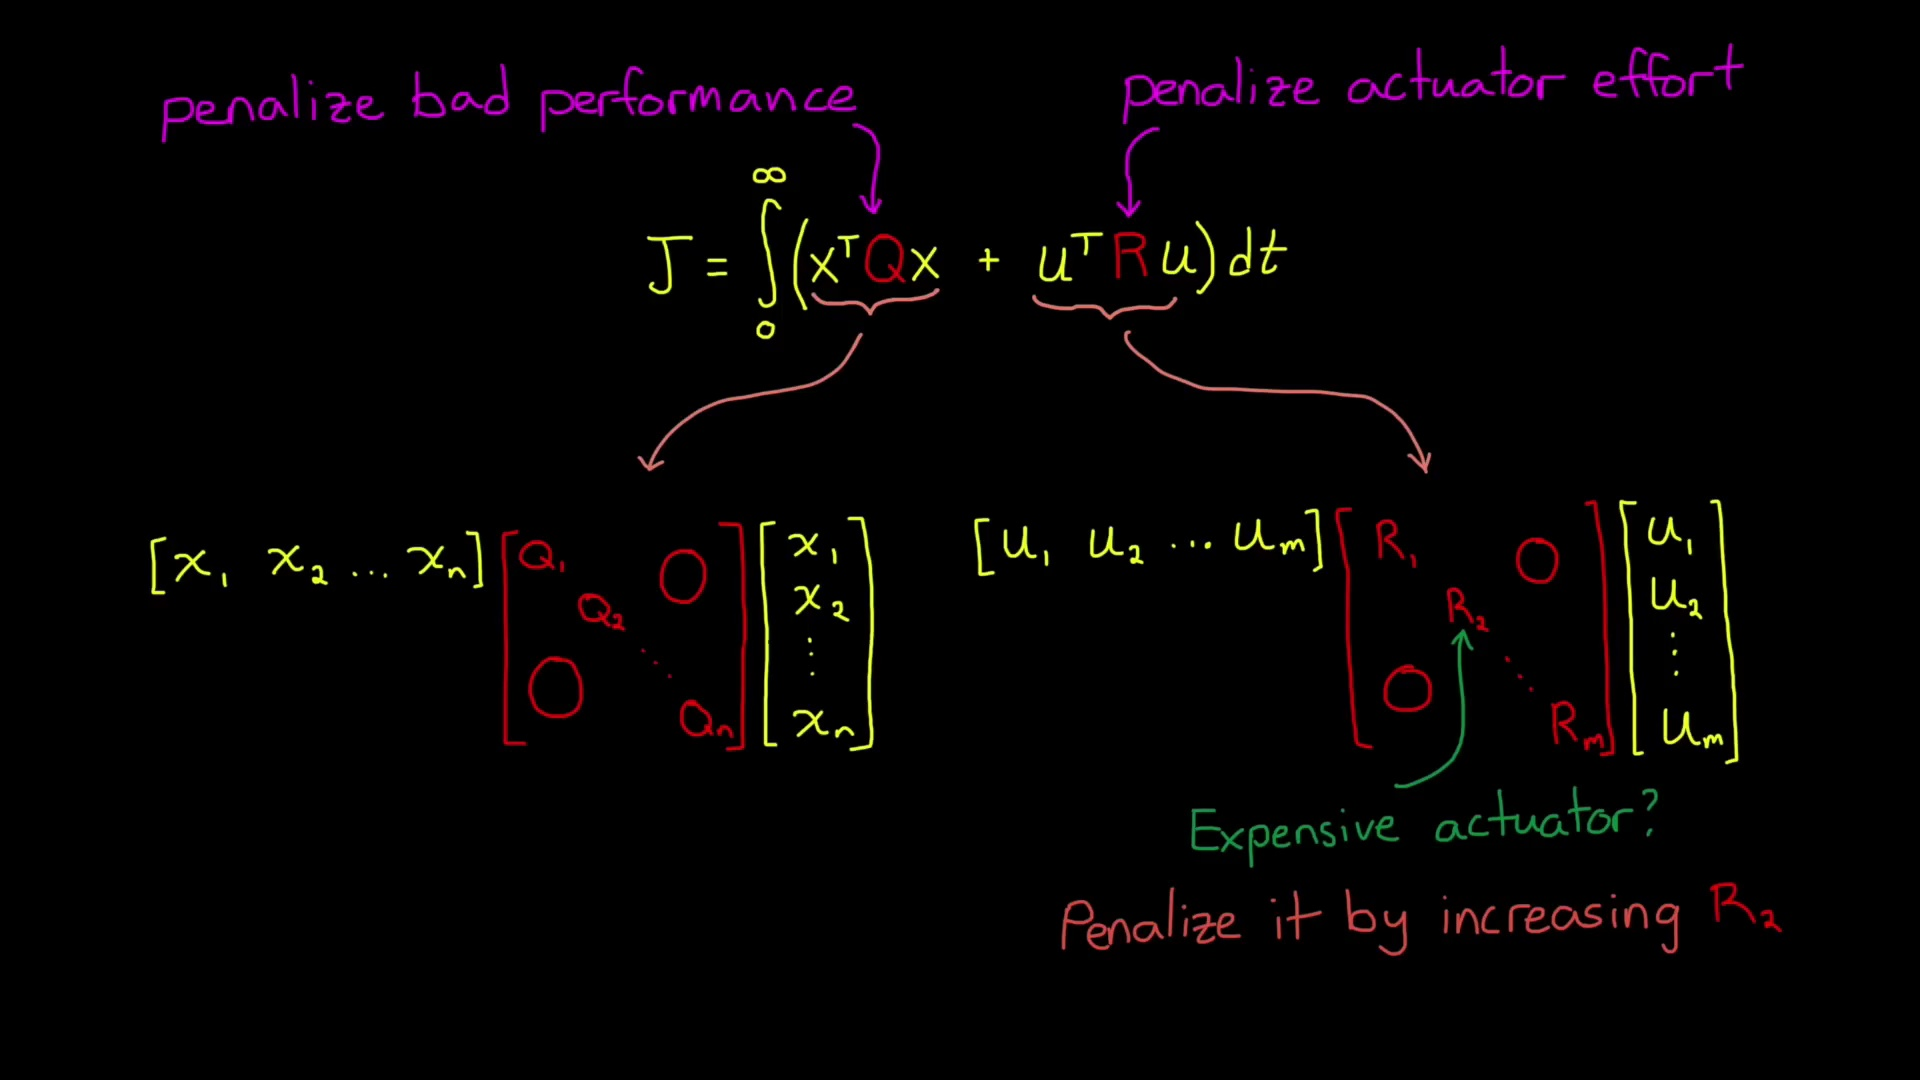 penalize bad performance
penalize actuator effort
J = ∫₀^∞ (xᵀQx + uᵀRu) dt
[x₁ x₂ ... xₙ] [Q₁ Q₂ ⋱ Qₙ 0 0] [x₁ x₂ ⋮ xₙ]
[u₁ u₂ ... uₘ] [R₁ R₂ ⋱ Rₘ 0 0] [u₁ u₂ ⋮ uₘ]
Expensive actuator?
Penalize it by increasing R₂